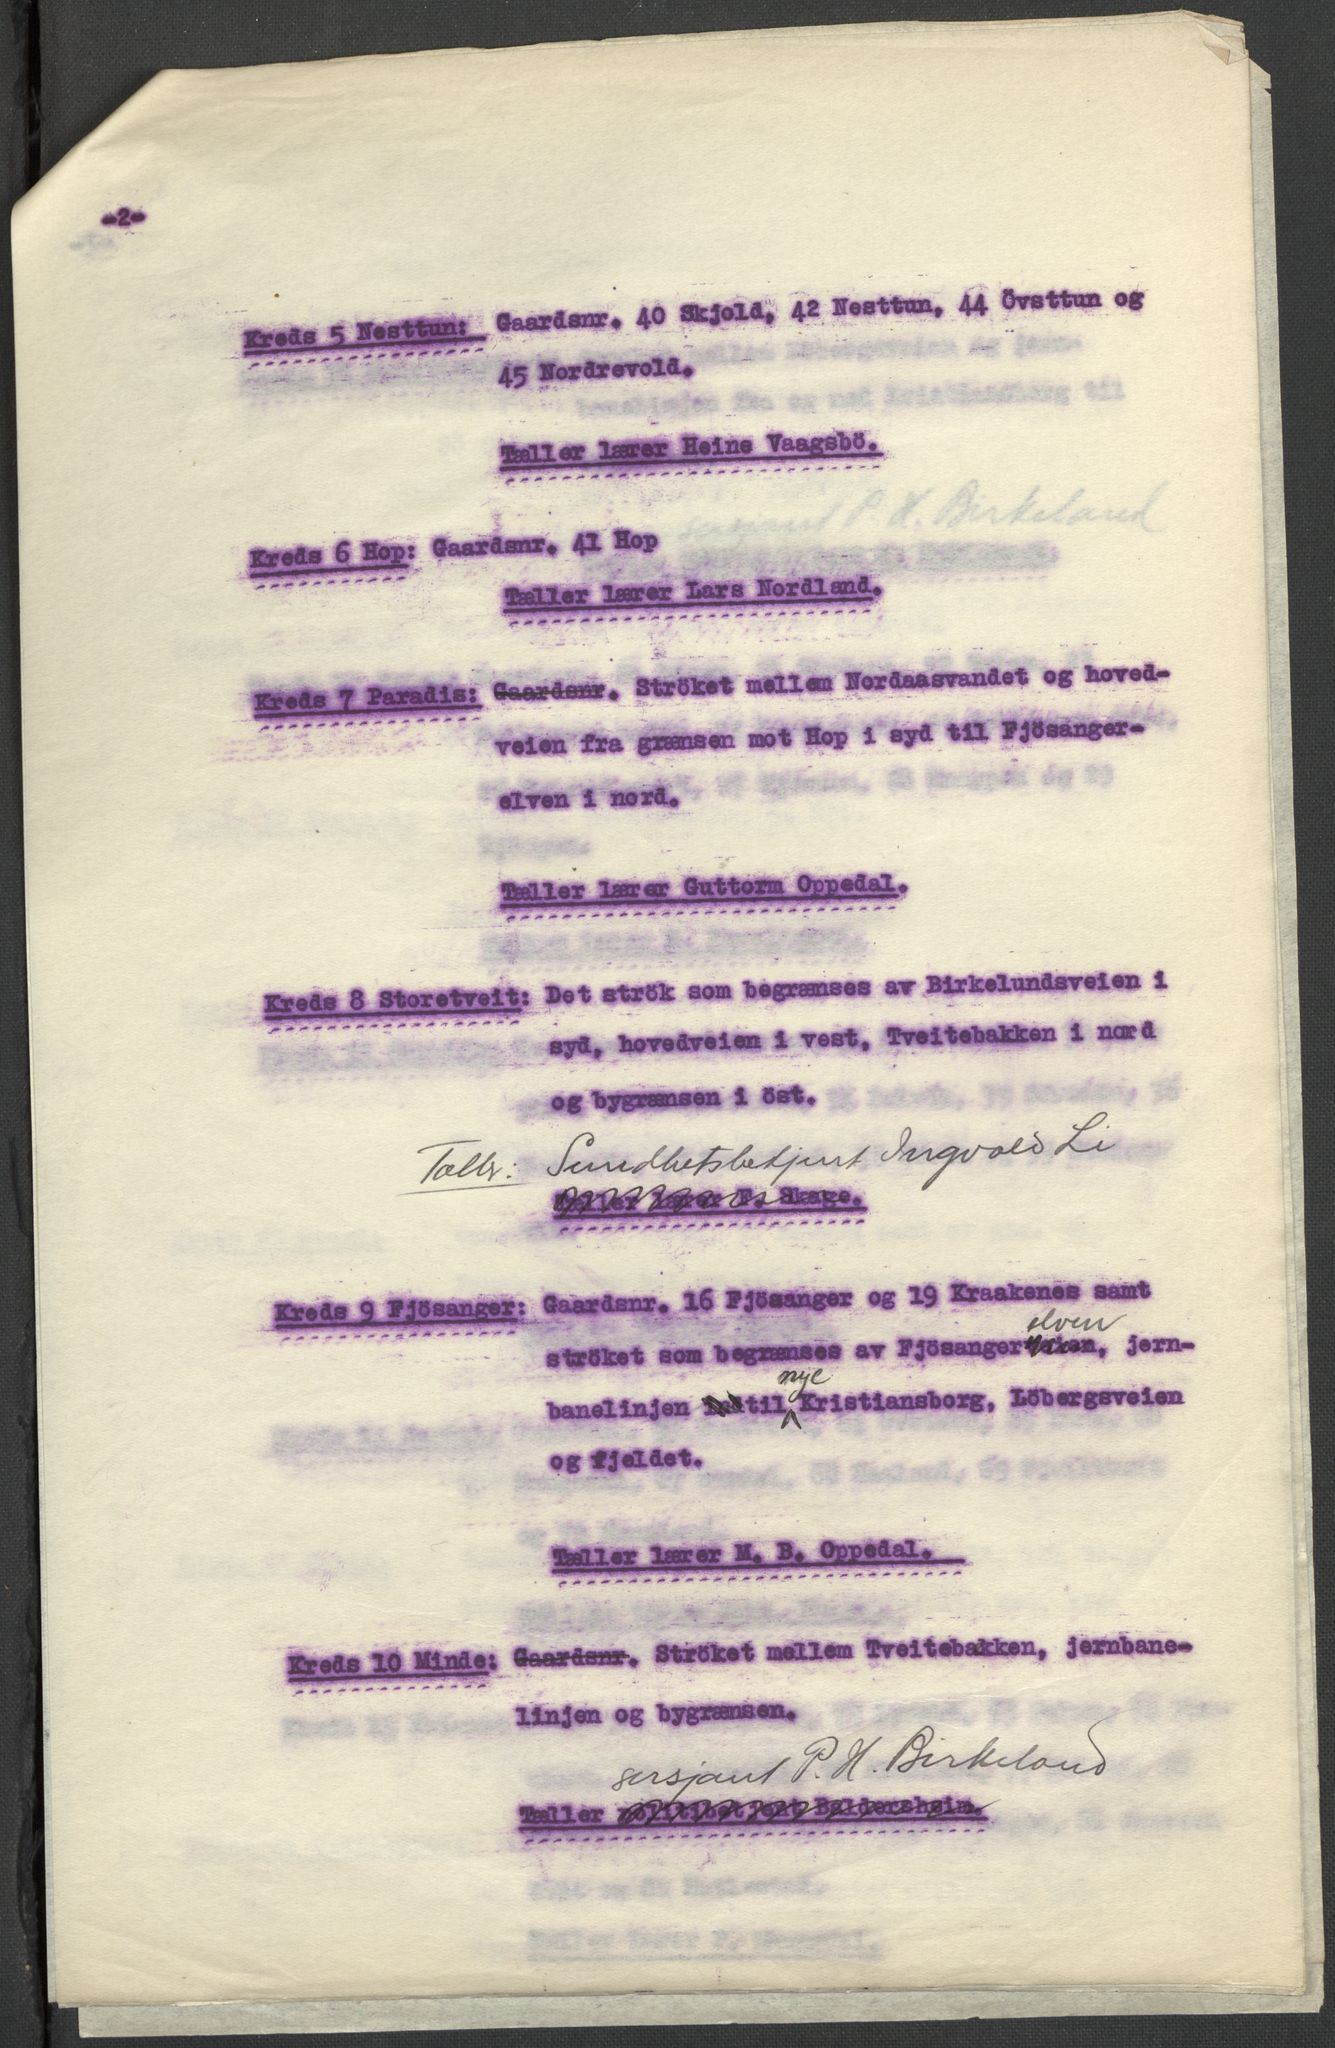 -2-
Kreds 5 Nesttun: Gaardsnr. 40 Skjold, 42 Nesttun, 44 Övsttun og
45 Nordrevold.
Tæller lærer Heine Vaagsbö.
sersjant P. H. Birkeland
Kreds 6 Hop: Gaardsnr. 41 Hop
Tæller lærer Lars Nordland.
Kreds 7 Paradis: Gaardsnr. Ströket mellem Nordaasvandet og hoved-
veien fra grænsen mot Hop i syd til Fjösanger-
elven i nord.
Tæller lærer Guttorm Oppedal.
Kreds 8 Storetveit: Det strök som begrænses av Birkelundsveien i
syd, hovedveien i vest, Tveitebakken i nord
og bygrænsen i öst.
Tæller: Sundhetsbetjent Ingvald Li
Tæller lærer F. Skage.
Kreds 9 Fjösanger: Gaardsnr. 16 Fjösanger og 19 Kraakenes samt
elven
ströket som begrænses av Fjösangerveien, jern-
nye
banelinjen til Kristiansborg, Löbergsveien
og fjeldet.
Tæller lærer M. B. Oppedal.
Kreds 10 Minde: Gaardsnr. Ströket mellem Tveitebakken, jernbane-
linjen og bygrænsen.
sersjant P. H. Birkeland
Tæller politibetjent Baldersheim.